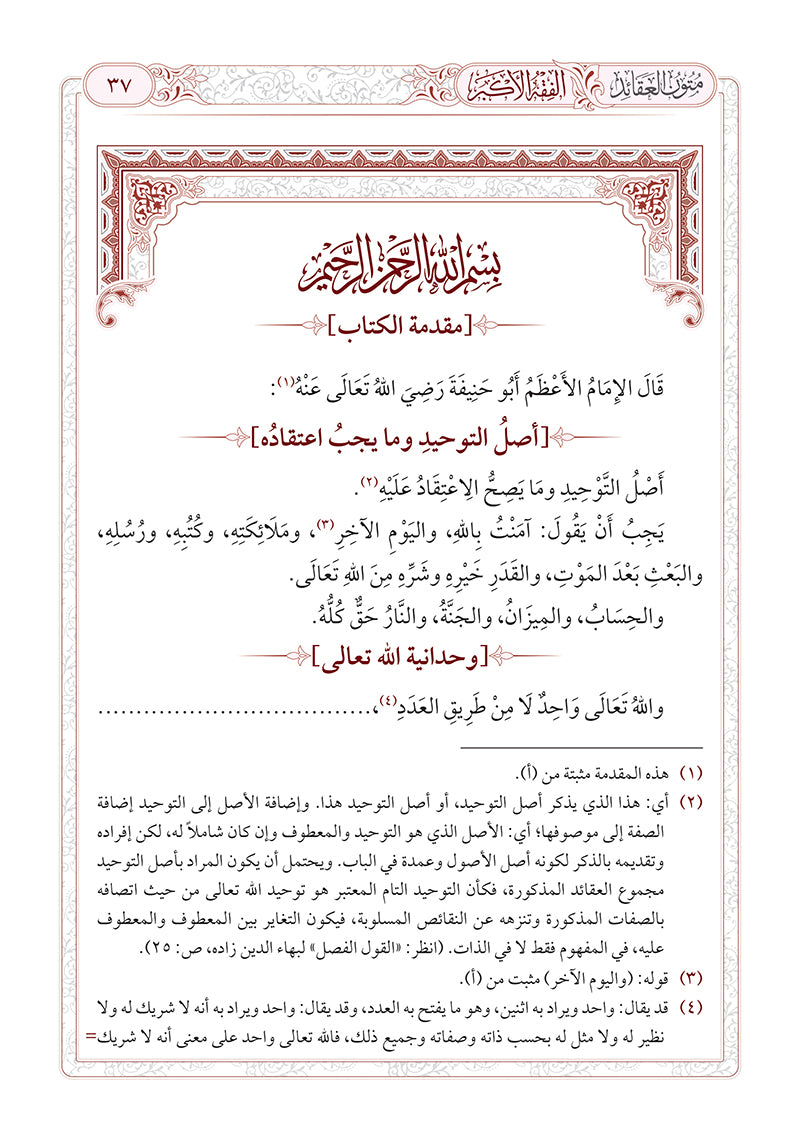 متون العقائد الفقه الأكبر ٣٧
بسم الله الرحمن الرحيم
[مقدمة الكتاب]
قَالَ الإِمَامُ الأَعْظَمُ أَبُو حَنِيفَةَ رَضِيَ اللهُ تَعَالَى عَنْهُ(١):
[أصلُ التوحيدِ وما يجبُ اعتقادُه]
أَصْلُ التَّوْحِيدِ ومَا يَصِحُّ الِاعْتِقَادُ عَلَيْهِ(٢).
يَجِبُ أَنْ يَقُولَ: آمَنْتُ بِاللهِ، واليَوْمِ الآخِرِ(٣)، ومَلَائِكَتِهِ، وكُتُبِهِ، ورُسُلِهِ،
والبَعْثِ بَعْدَ المَوْتِ، والقَدَرِ خَيْرِهِ وشَرِّهِ مِنَ اللهِ تَعَالَى.
والحِسَابُ، والمِيزَانُ، والجَنَّةُ، والنَّارُ حَقٌّ كُلُّهُ.
[وحدانية الله تعالى]
واللهُ تَعَالَى وَاحِدٌ لَا مِنْ طَرِيقِ العَدَدِ(٤)،...................................
(١) هذه المقدمة مثبتة من (أ).
(٢) أي: هذا الذي يذكر أصل التوحيد، أو أصل التوحيد هذا. وإضافة الأصل إلى التوحيد إضافة
الصفة إلى موصوفها؛ أي: الأصل الذي هو التوحيد والمعطوف وإن كان شاملاً له، لكن إفراده
وتقديمه بالذكر لكونه أصل الأصول وعمدة في الباب. ويحتمل أن يكون المراد بأصل التوحيد
مجموع العقائد المذكورة، فكأن التوحيد التام المعتبر هو توحيد الله تعالى من حيث اتصافه
بالصفات المذكورة وتنزهه عن النقائص المسلوبة، فيكون التغاير بين المعطوف والمعطوف
عليه، في المفهوم فقط لا في الذات. (انظر: «القول الفصل» لبهاء الدين زاده، ص: ٢٥).
(٣) قوله: (واليوم الآخر) مثبت من (أ).
(٤) قد يقال: واحد ويراد به اثنين، وهو ما يفتح به العدد، وقد يقال: واحد ويراد به أنه لا شريك له ولا
نظير له ولا مثل له بحسب ذاته وصفاته وجميع ذلك، فالله تعالى واحد على معنى أنه لا شريك=